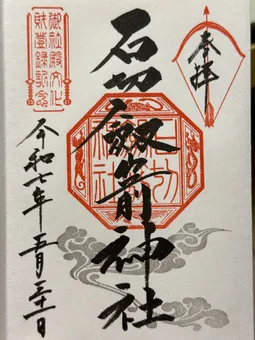 奉拝
石切劔箭神社
御社殿文化
財登録記念
令和七年五月三十一日